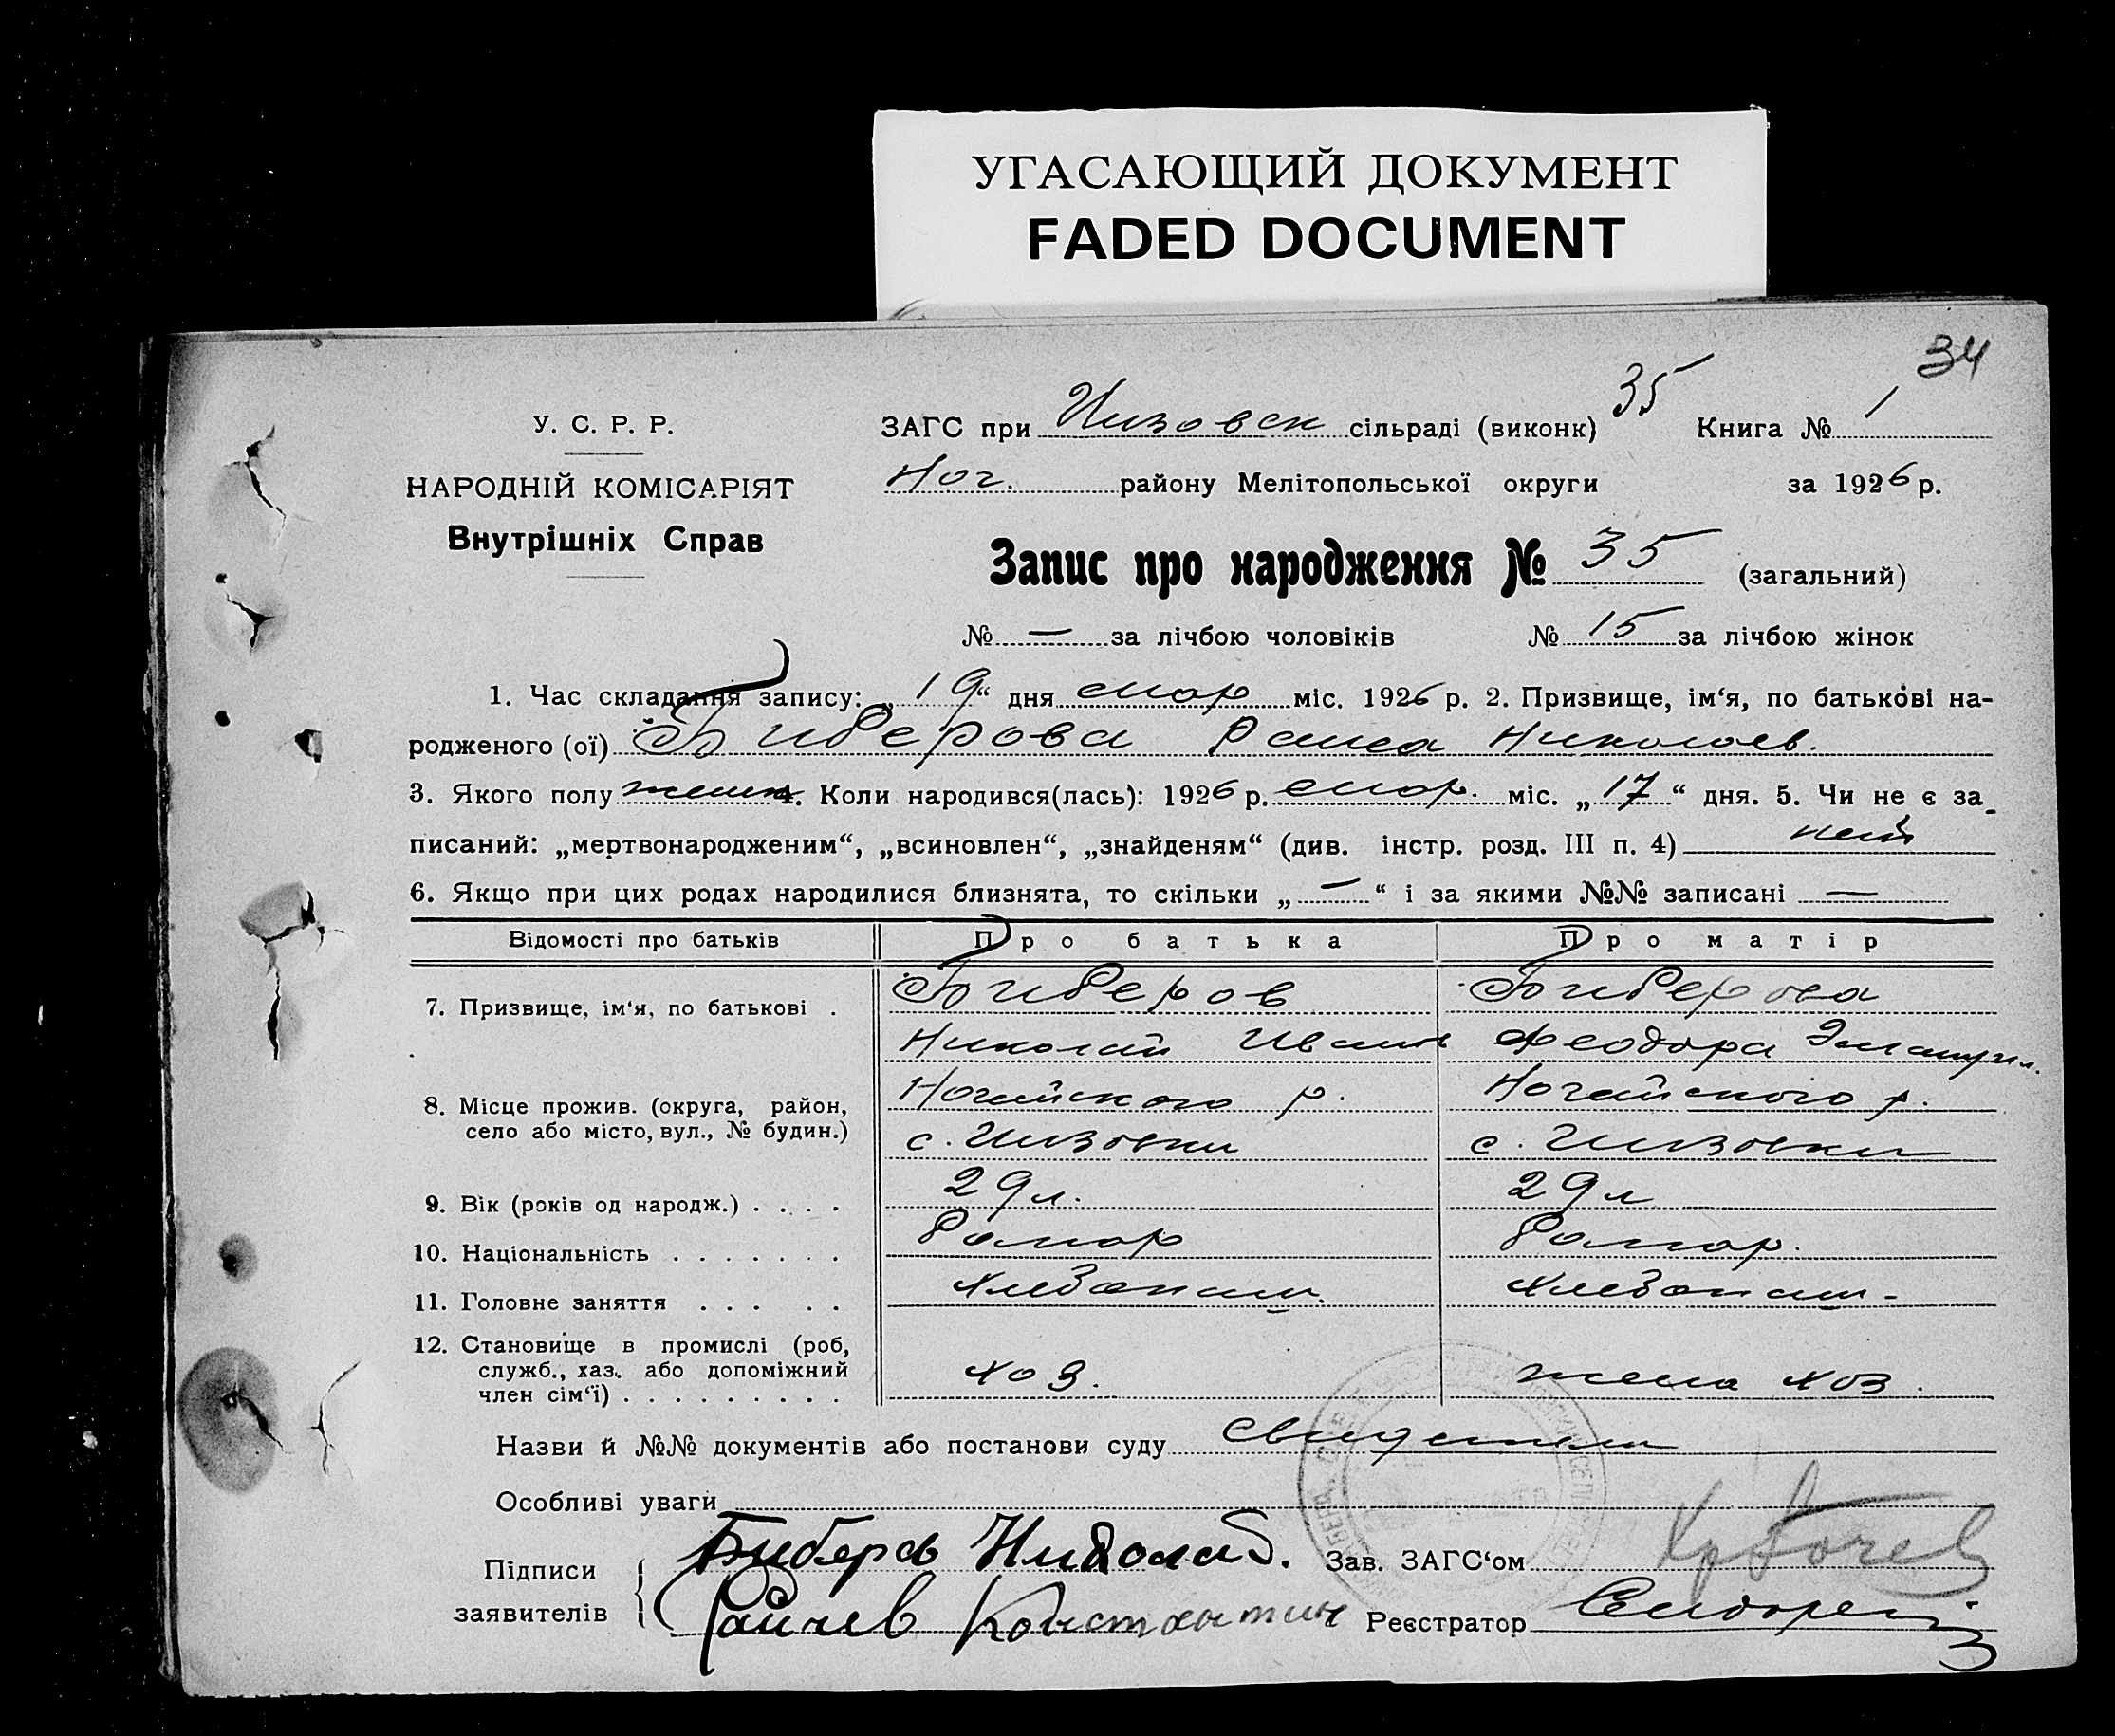 УГАСАЮЩИЙ ДОКУМЕНТ
FADED DOCUMENT
34
У. С. Р. Р.
НАРОДНІЙ КОМІСАРІЯТ
Внутрішніх Справ
ЗАГС при Низовск сільраді (виконк) 35 Книга № 1
Ног. району Мелітопольської округи за 1926 р.
Запис про народження № 35 (загальний)
№ — за лічбою чоловіків № 15 за лічбою жінок
1. Час складання запису: „19“ дня міс. 1926 р. 2. Призвище, ім‘я, по батькові на-
родженого (ої) Биберова Раиса Николаев.
3. Якого полу женск 4. Коли народився(лась): 1926 р. міс. „17“ дня. 5. Чи не є за-
писаний: „мертвонародженим“, „всиновлен“, „знайденям“ (див. інстр. розд. III п. 4) нет
6. Якщо при цих родах народилися близнята, то скільки „—“ і за якими №№ записані —
Відомості про батьків Про батька Про матір
7. Призвище, ім‘я, по батькові . Биберов Биберова
Николай Иванов Феодора Эмануил.
8. Місце прожив. (округа, район, село або місто, вул., № будин.) Ногайского р. Ногайского р.
с. Низовки с. Низовки
9. Вік (років од народж.) . . . . 29 л. 29 л
10. Національність . . . . . . .
11. Головне заняття . . . . . Хлебопаш. Хлебопаш-
12. Становище в промислі (роб, служб., хаз. або допоміжний член сім‘ї) . . . . . . . . . хоз. жена хоз.
Назви й №№ документів або постанови суду
Особливі уваги
Підписи заявителів Биберов Николай. Зав. ЗАГС‘ом
Райчев Константин Реєстратор